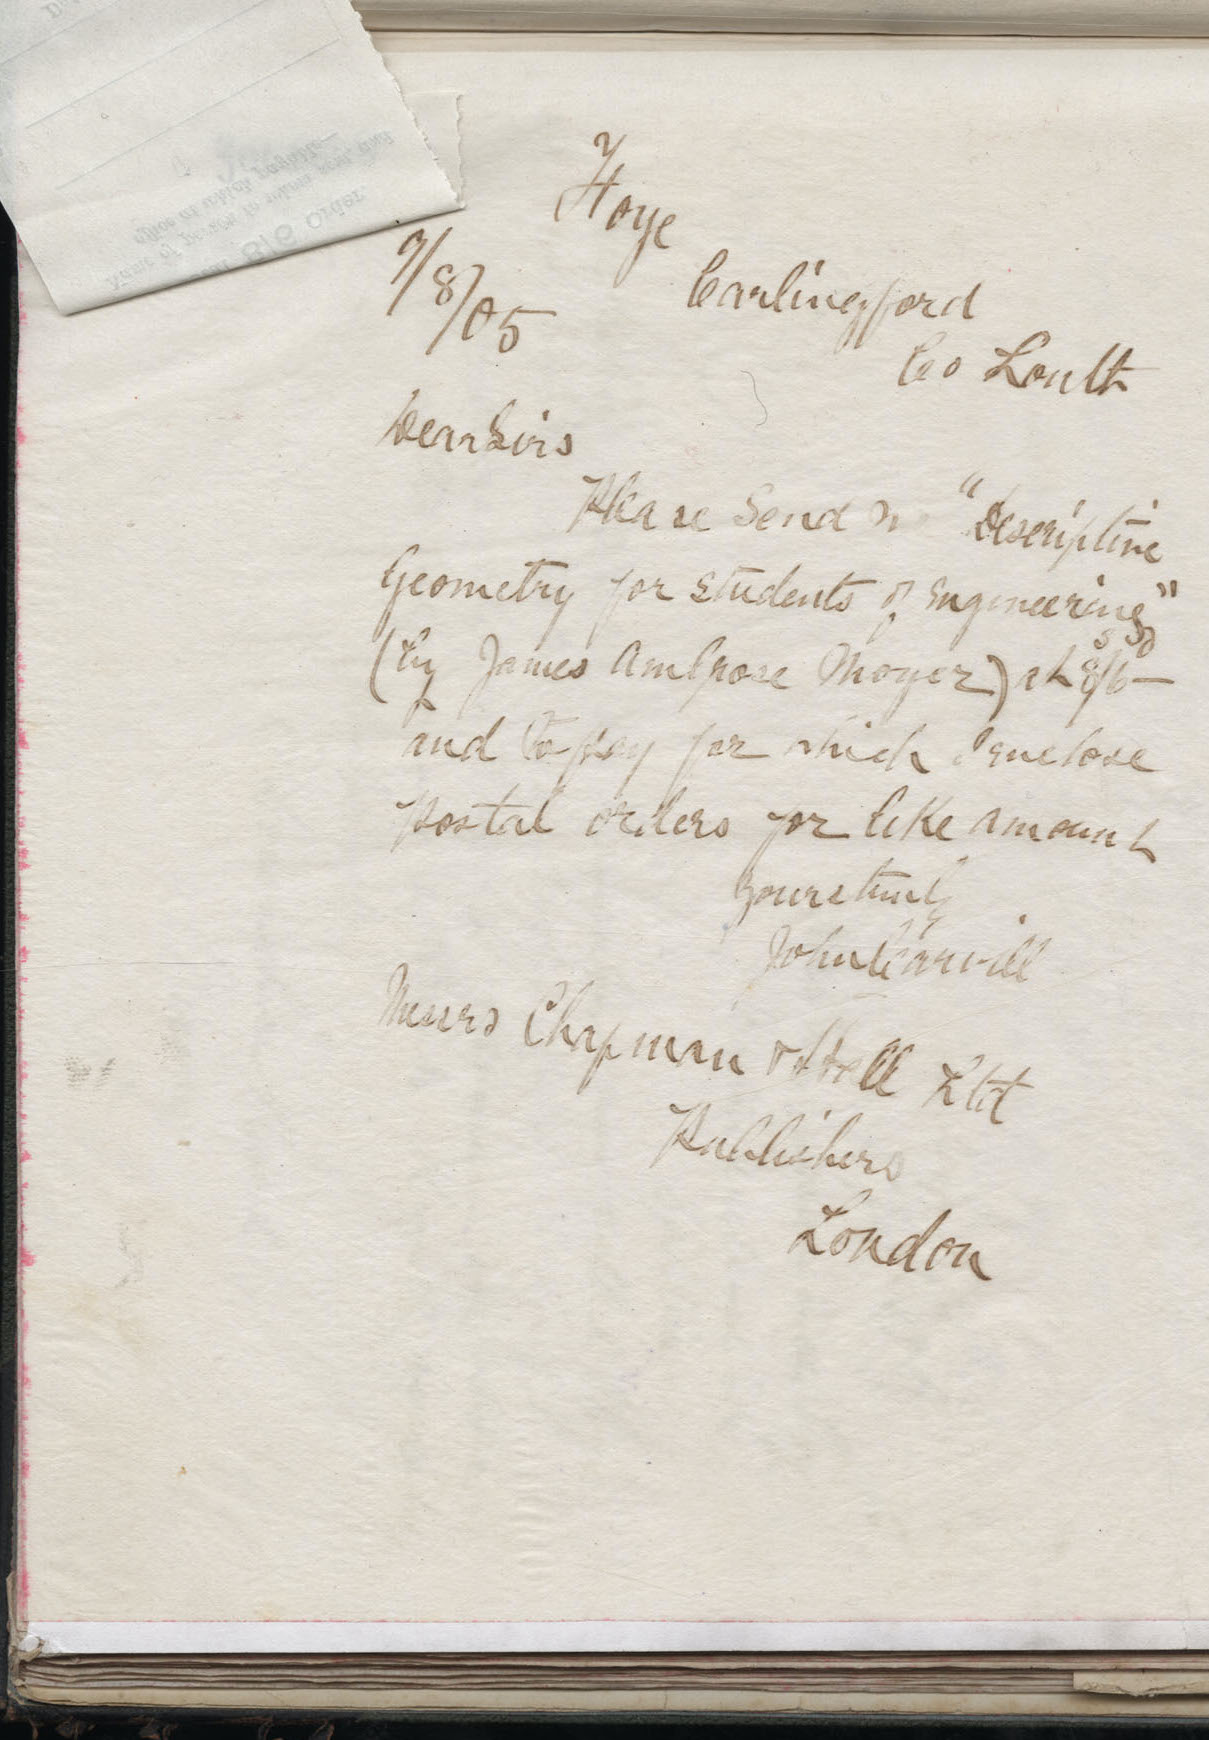 Foye
9/8/05
Carlingford
Co Louth
Dear Sirs
Please Send me "Descriptive
Geometry for Students of Engineering"
(by James Ambrose Moyer) at 8s/6D
and to pay for which I enclose
Postal orders for like amount
Yours truly
John Carvill
Messrs Chapman & Hall Ltd
Publishers
London